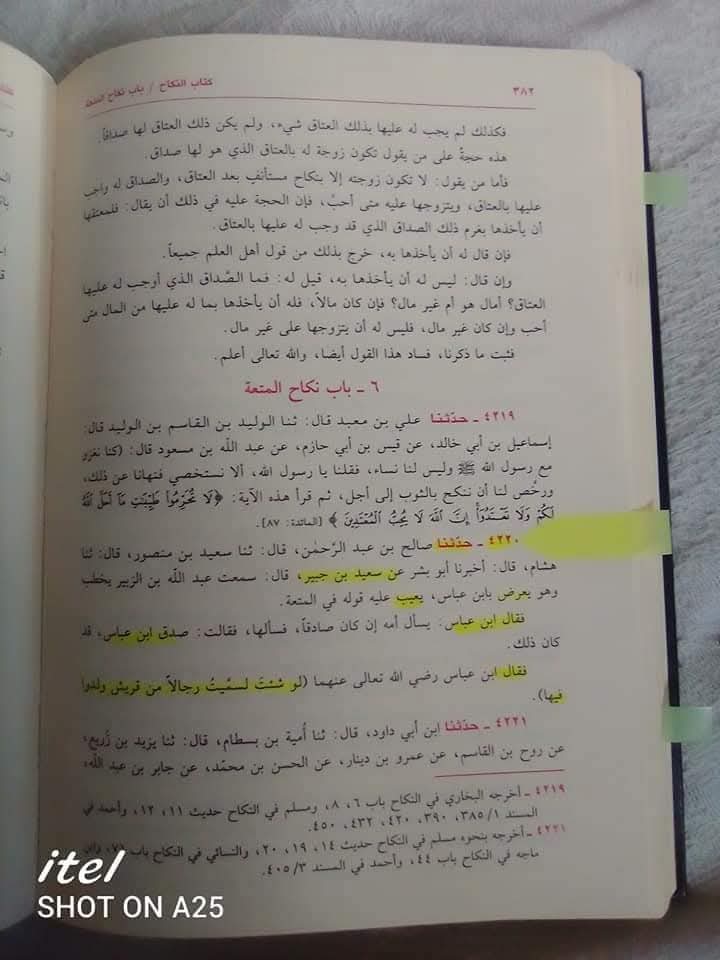 ٣٨٢
كتاب النكاح / باب نكاح المتعة
فكذلك لم يجب له عليها بذلك العتاق شيء، ولم يكن ذلك العتاق لها صداقاً.
هذه حجةٌ على من يقول تكون زوجة له بالعتاق الذي هو لها صداق.
فأما من يقول: لا تكون زوجته إلا بنكاح مستأنفٍ بعد العتاق، والصداق له واجب
عليها بالعتاق، ويتزوجها عليه متى أحبَّ، فإن الحجة عليه في ذلك أن يقال: فلمعتقها
أن يأخذها بغرم ذلك الصداق الذي قد وجب له عليها بالعتاق.
فإن قال له أن يأخذها به، خرج بذلك من قول أهل العلم جميعاً.
وإن قال: ليس له أن يأخذها به، قيل له: فما الصَّداق الذي أوجب له عليها
العتاق؟ أمال هو أم غير مال؟ فإن كان مالاً، فله أن يأخذها بما له عليها من المال متى
أحب وإن كان غير مال، فليس له أن يتزوجها على غير مال.
فثبت ما ذكرنا، فساد هذا القول أيضا، والله تعالى أعلم.
٦ ـ باب نكاح المتعة
٤٢١٩ ـ حدّثنا علي بن معبد قال: ثنا الوليد بن القاسم بن الوليد قال:
إسماعيل بن أبي خالد، عن قيس بن أبي حازم، عن عبد اللّه بن مسعود قال: (كنا نغزو
مع رسول الله ﷺ وليس لنا نساء، فقلنا يا رسول الله، ألا نستخصي فنهانا عن ذلك،
ورخَّص لنا أن ننكح بالثوب إلى أجل، ثم قرأ هذه الآية: ﴿لَا تُحَرِّمُوا۟ طَيِّبَٰتِ مَآ أَحَلَّ ٱللَّهُ
لَكُمْ وَلَا تَعْتَدُوٓا۟ إِنَّ ٱللَّهَ لَا يُحِبُّ ٱلْمُعْتَدِينَ﴾ [المائدة: ٨٧].
٤٢٢٠ ـ حدّثنا صالح بن عبد الرَّحمٰن، قال: ثنا سعيد بن منصور، قال: ثنا
هشام، قال: أخبرنا أبو بشر عن سعيد بن جبير، قال: سمعت عبد اللّه بن الزبير يخطب
وهو يعرض بابن عباس، يعيب عليه قوله في المتعة.
فقال ابن عباس: يسأل أمه إن كان صادقاً، فسألها، فقالت: صدق ابن عباس، قد
كان ذلك.
فقال ابن عباس رضي الله تعالى عنهما (لو شئتَ لسمَّيتُ رجالاً من قريش ولدوا
فيها).
٤٢٢١ ـ حدّثنا ابن أبي داود، قال: ثنا أمية بن بسطام، قال: ثنا يزيد بن زُريع،
عن روح بن القاسم، عن عمرو بن دينار، عن الحسن بن محمّد، عن جابر بن عبد اللّه،
٤٢١٩ ـ أخرجه البخاري في النكاح باب ٦، ٨، ومسلم في النكاح حديث ١١، ١٢، وأحمد في
المسند ١/ ٣٨٥، ٣٩٠، ٤٢٠، ٤٣٢، ٤٥٠.
٤٢٢١ ـ أخرجه بنحوه مسلم في النكاح حديث ١٤، ١٩، ٢٠، والنسائي في النكاح باب ٧١، وابن
ماجه في النكاح باب ٤٤، وأحمد في المسند ٣/ ٤٠٥.
itel
SHOT ON A25